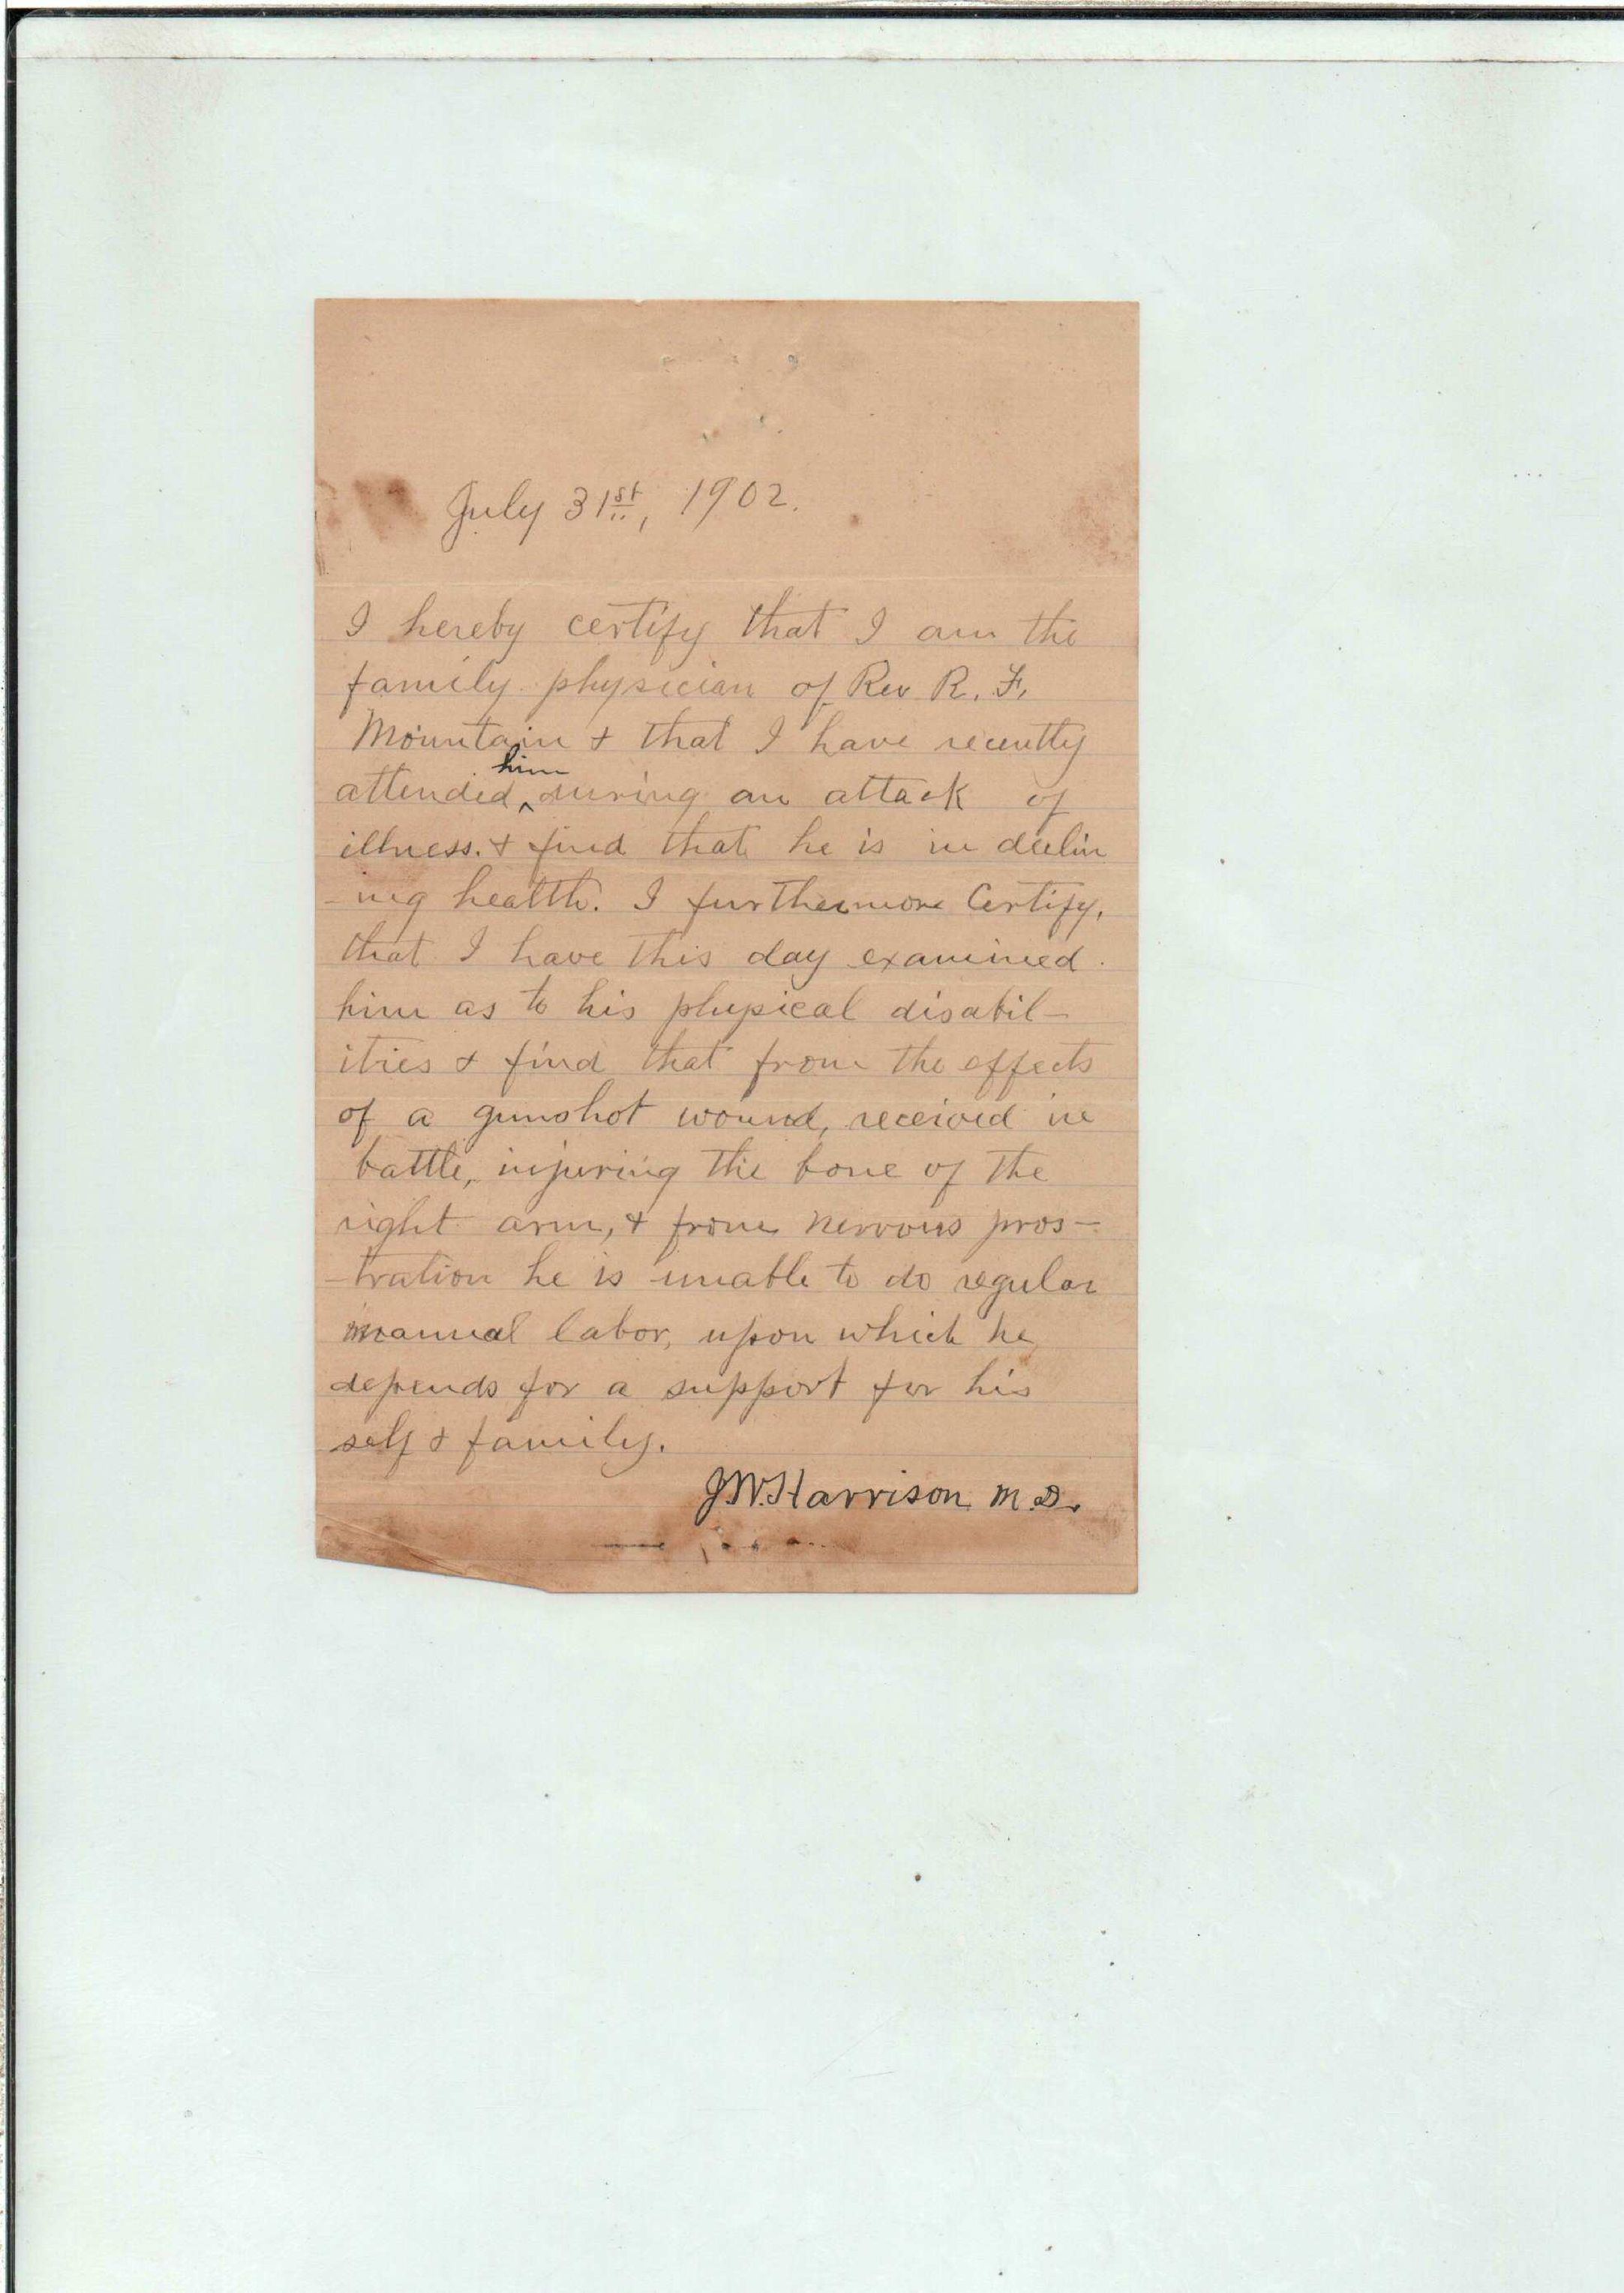 July 31st, 1902.
I hereby certify that I am the
family physician of Rev R. F.
Mountain & that I have recently
attended ^him during an attack of
illness. & find that he is in declin
-ing health. I furthermore Certify,
that I have this day examined
him as to his physical disabil-
ities & find that from the effects
of a gunshot wound, received in
battle, injuring the bone of the
right arm, & from nervous pros-
-tration he is unable to do regular
manual labor, upon which he
depends for a support for his
self & family.
J.W. Harrison M.D.